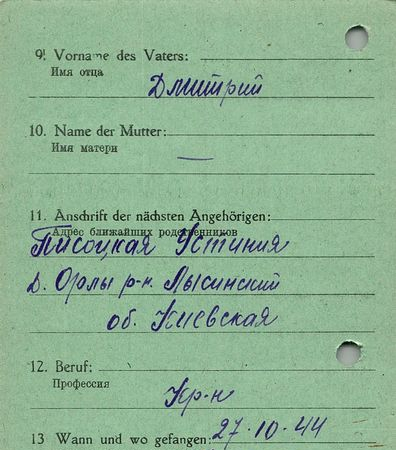 9. Vorname des Vaters:
Имя отца
Дмитрий
10. Name der Mutter:
Имя матери
—
11. Anschrift der nächsten Angehörigen:
Адрес ближайших родственников
Писоцкая Устиния
д. Орлы р-н. Лысинский
об. Киевская
12. Beruf:
Профессия
Кр-н
13 Wann und wo gefangen: 27·10·44